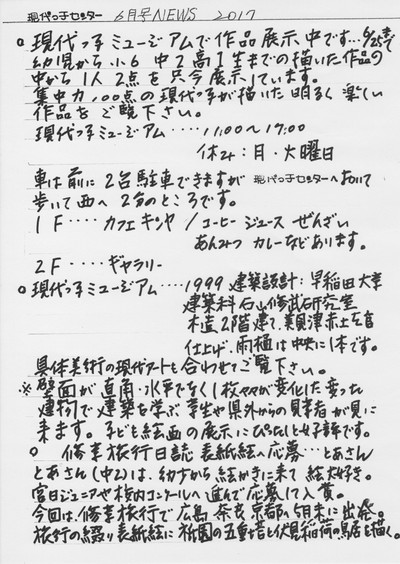 現代っ子センター 6月号NEWS 2017
○現代っ子ミュージアムで作品展示中です…6/25まで
幼児から小6 中2 高1生までの描いた作品の
中から1人2点を只今展示しています。
集中力100点の現代っ子が描いた明るく楽しい
作品をご覧下さい。
現代っ子ミュージアム‥‥‥11:00〜17:00
休み:月・火曜日
車は前に2台駐車できますが 現代っ子センターへおいて
歩いて西へ2分のところです。
1F‥‥カフェキンヤ/コーヒー ジュース ぜんざい
あんみつ カレーなどあります。
2F‥‥ギャラリー
○現代っ子ミュージアム‥‥1999 建築設計:早稲田大学
建築科石山修武研究室
木造2階建て、美貝津赤土左官
仕上げ、雨樋は中央に1本です。
具体美術の現代アートも合わせてご覧下さい。
※壁面が直角・水平でなく1枚々々が変化した変った
建物で建築を学ぶ学生や県外からの見学者が見に
来ます。子ども絵画の展示にぴったしと好評です。
○ 修学旅行日誌表紙絵へ応募…とあさん
とあさん(中2)は、幼少から絵かきに来て絵大好き。
宮日ジュニアや校内コンクールへ進んで応募して入賞。
今回は、修学旅行で広島 奈良 京都へ5月末に出発。
旅行の綴り表紙絵に祇園の五重塔と伏見稲荷の鳥居を描く。